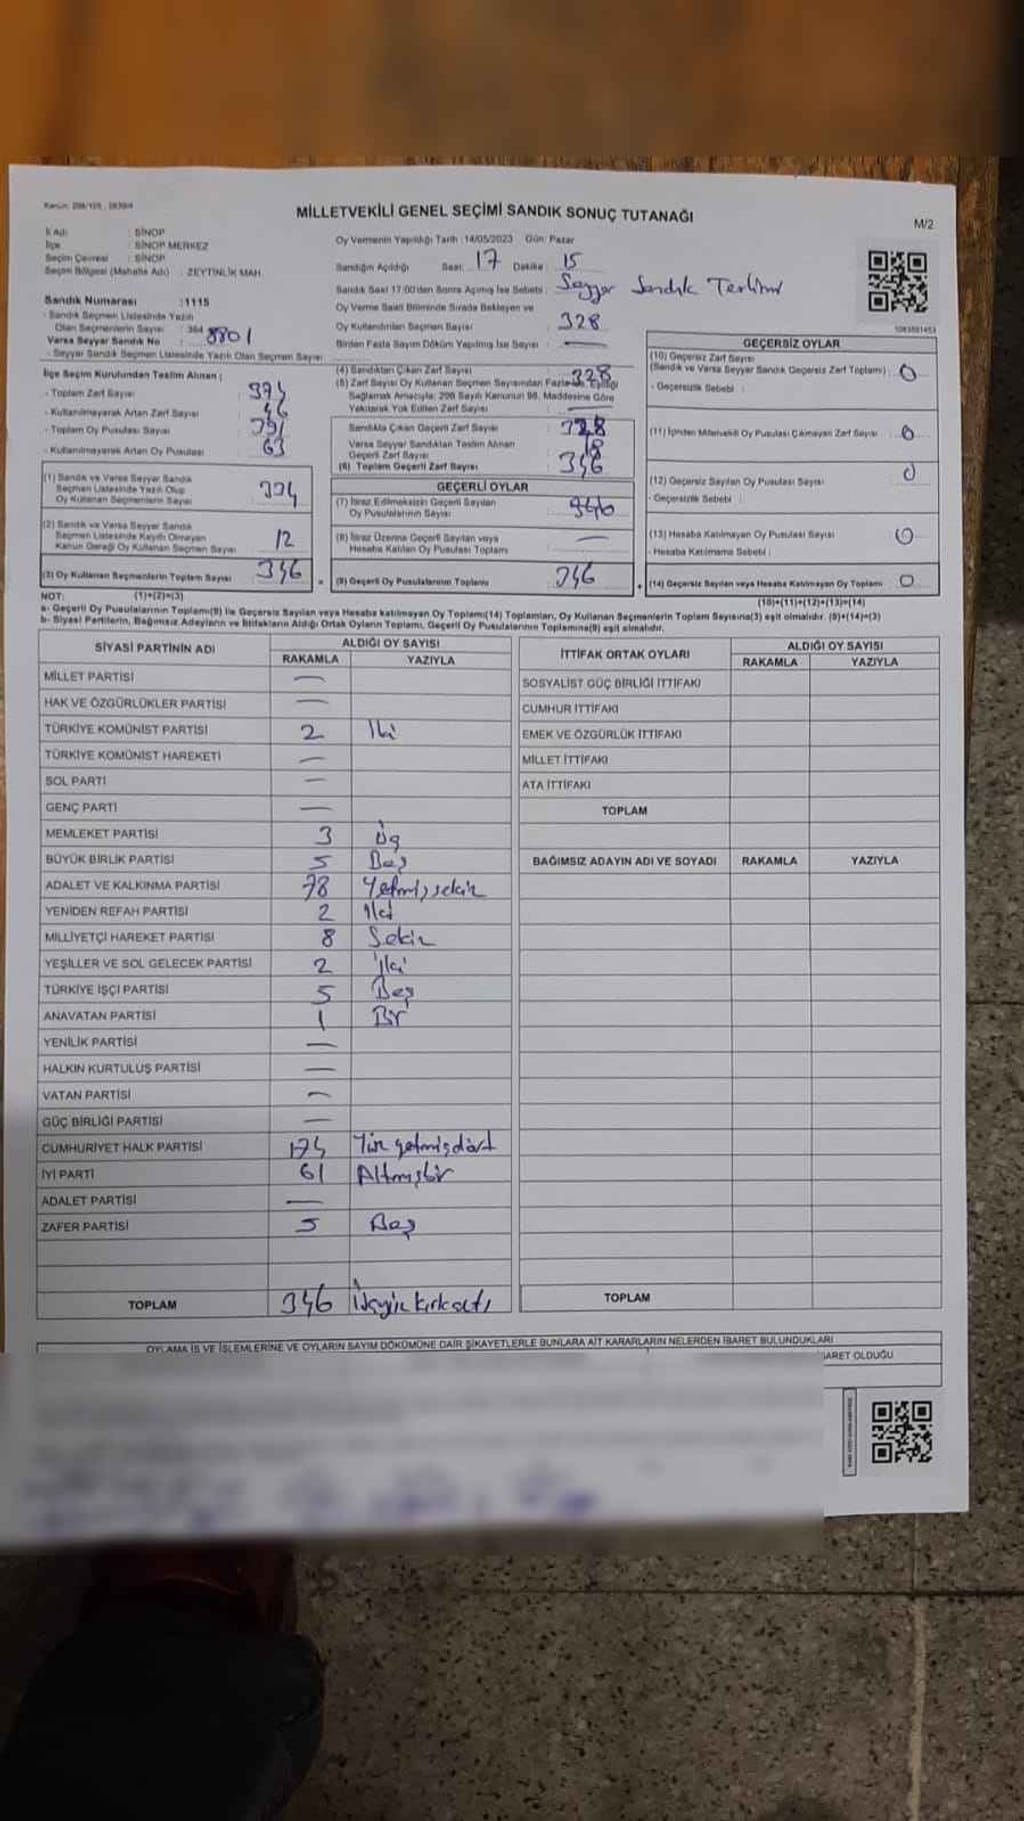 Kanun: 298/105, 2839/4
MİLLETVEKİLİ GENEL SEÇİMİ SANDIK SONUÇ TUTANAĞI
M/2
İl Adı : SİNOP
İlçe : SİNOP MERKEZ
Seçim Çevresi : SİNOP
Seçim Bölgesi (Mahalle Adı) : ZEYTİNLİK MAH.
Sandık Numarası :1115
- Sandık Seçmen Listesinde Yazılı
Olan Seçmenlerin Sayısı : 364
Varsa Seyyar Sandık No : 8801
- Seyyar Sandık Seçmen Listesinde Yazılı Olan Seçmen Sayısı:
Oy Vermenin Yapıldığı Tarih :14/05/2023 Gün: Pazar
Sandığın Açıldığı Saat: 17 Dakika : 15
Sandık Saat 17:00'den Sonra Açılmış İse Sebebi : Seyyar Sandık Teslimi
Oy Verme Saati Bitiminde Sırada Bekleyen ve
Oy Kullandırılan Seçmen Sayısı : 328
Birden Fazla Sayım Döküm Yapılmış İse Sayısı : —
İlçe Seçim Kurulundan Teslim Alınan :
- Toplam Zarf Sayısı
- Kullanılmayarak Artan Zarf Sayısı 46
- Toplam Oy Pusulası Sayısı
- Kullanılmayarak Artan Oy Pusulası 63
(1) Sandık ve Varsa Seyyar Sandık
Seçmen Listesinde Yazılı Olup
Oy Kullanan Seçmenlerin Sayısı 334
(2) Sandık ve Varsa Seyyar Sandık
Seçmen Listesinde Kayıtlı Olmayan
Kanun Gereği Oy Kullanan Seçmen Sayısı 12
(3) Oy Kullanan Seçmenlerin Toplam Sayısı 346
(1)+(2)=(3)
(4) Sandıktan Çıkan Zarf Sayısı : 328
(5) Zarf Sayısı Oy Kullanan Seçmen Sayısından Fazla ise, Eşitliği
Sağlamak Amacıyla; 298 Sayılı Kanunun 98. Maddesine Göre
Yakılarak Yok Edilen Zarf Sayısı : —
Sandıkta Çıkan Geçerli Zarf Sayısı : 328
Varsa Seyyar Sandıktan Teslim Alınan
Geçerli Zarf Sayısı : 18
(6) Toplam Geçerli Zarf Sayısı : 346
GEÇERLİ OYLAR
(7) İtiraz Edilmeksizin Geçerli Sayılan
Oy Pusulalarının Sayısı : 346
(8) İtiraz Üzerine Geçerli Sayılan veya
Hesaba Katılan Oy Pusulası Toplamı : —
(9) Geçerli Oy Pusulalarının Toplamı : 346
GEÇERSİZ OYLAR
(10) Geçersiz Zarf Sayısı
(Sandık ve Varsa Seyyar Sandık Geçersiz Zarf Toplamı) : 0
- Geçersizlik Sebebi :
(11) İçinden Milletvekili Oy Pusulası Çıkmayan Zarf Sayısı : 0
(12) Geçersiz Sayılan Oy Pusulası Sayısı : 0
- Geçersizlik Sebebi :
(13) Hesaba Katılmayan Oy Pusulası Sayısı : 0
- Hesaba Katılmama Sebebi :
(14) Geçersiz Sayılan veya Hesaba Katılmayan Oy Toplamı : 0
(10)+(11)+(12)+(13)=(14)
NOT:
a- Geçerli Oy Pusulalarının Toplamı(9) ile Geçersiz Sayılan veya Hesaba katılmayan Oy Toplamı(14) Toplamları, Oy Kullanan Seçmenlerin Toplam Sayısına(3) eşit olmalıdır. (9)+(14)=(3)
b- Siyasi Partilerin, Bağımsız Adayların ve İttifakların Aldığı Ortak Oyların Toplamı, Geçerli Oy Pusulalarının Toplamına(9) eşit olmalıdır.
SİYASİ PARTİNİN ADI ALDIĞI OY SAYISI
RAKAMLA YAZIYLA
MİLLET PARTİSİ —
HAK VE ÖZGÜRLÜKLER PARTİSİ —
TÜRKİYE KOMÜNİST PARTİSİ 2 İki
TÜRKİYE KOMÜNİST HAREKETİ —
SOL PARTİ —
GENÇ PARTİ —
MEMLEKET PARTİSİ 3 Üç
BÜYÜK BİRLİK PARTİSİ 5 Beş
ADALET VE KALKINMA PARTİSİ 78 Yetmişsekiz
YENİDEN REFAH PARTİSİ 2 İki
MİLLİYETÇİ HAREKET PARTİSİ 8 Sekiz
YEŞİLLER VE SOL GELECEK PARTİSİ 2 İki
TÜRKİYE İŞÇİ PARTİSİ 5 Beş
ANAVATAN PARTİSİ 1 Bir
YENİLİK PARTİSİ —
HALKIN KURTULUŞ PARTİSİ —
VATAN PARTİSİ —
GÜÇ BİRLİĞİ PARTİSİ —
CUMHURİYET HALK PARTİSİ 174 Yüz yetmişdört
İYİ PARTİ 61 Altmışbir
ADALET PARTİSİ —
ZAFER PARTİSİ 5 Beş
TOPLAM 346 Üçyüz kırkaltı
İTTİFAK ORTAK OYLARI ALDIĞI OY SAYISI
RAKAMLA YAZIYLA
SOSYALİST GÜÇ BİRLİĞİ İTTİFAKI
CUMHUR İTTİFAKI
EMEK VE ÖZGÜRLÜK İTTİFAKI
MİLLET İTTİFAKI
ATA İTTİFAKI
TOPLAM
BAĞIMSIZ ADAYIN ADI VE SOYADI RAKAMLA YAZIYLA
TOPLAM
OYLAMA İŞ VE İŞLEMLERİNE VE OYLARIN SAYIM DÖKÜMÜNE DAİR ŞİKAYETLERLE BUNLARA AİT KARARLARIN NELERDEN İBARET BULUNDUKLARI
BARET OLDUĞU